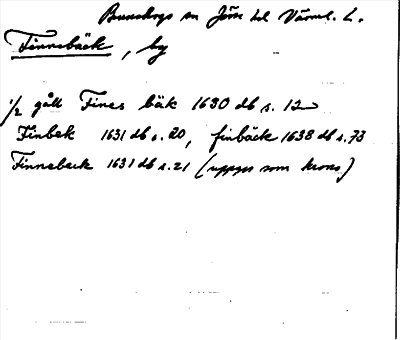 Brunskogs sn Jösse hd Värml. L.
Finnebäck, by
1/2 gåll Fines bäk 1630 db s. 12
Finbek 1631 db s. 20, finbäck 1638 db s. 73
Finnebeck 1631 db s. 21 (uppges som krono)